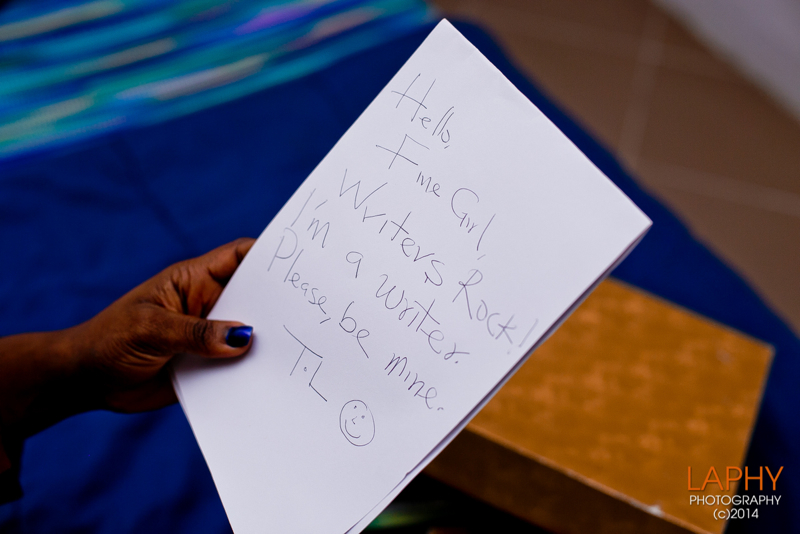 Hello,
Fine Girl,
Writers Rock!
I'm a writer.
Please, be mine.
T.L
LAPHY
PHOTOGRAPHY
(c)2014